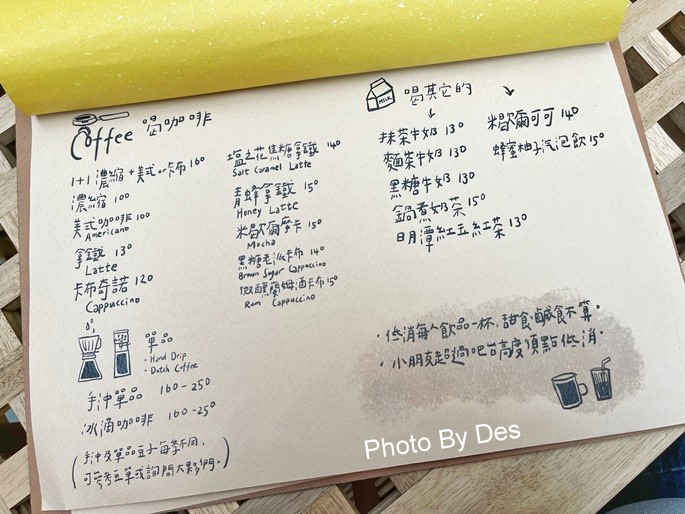 Coffee 喝咖啡
1+1 濃縮+美式or卡布 160
濃縮 100
美式咖啡 100
Americano
拿鐵 130
Latte
卡布奇諾 120
Cappuccino
塩之花焦糖拿鐵 140
Salt Caramel Latte
青蜂拿鐵 150
Honey Latte
米歇爾摩卡 150
Mocha
黑糖老派卡布 140
Brown Sugar Cappuccino
微醺蘭姆酒卡布 150
Rum Cappuccino
單品
- Hand Drip
- Dutch Coffee
手沖單品 160-250
冰滴咖啡 160-250
(手沖及單品豆子每季不同,
可參考豆單或詢問大夥們。)
MILK
喝其它的
抹茶牛奶 130
麵茶牛奶 130
黑糖牛奶 130
鍋煮奶茶 150
日月潭紅玉紅茶 130
米歇爾可可 140
蜂蜜柚子汽泡飲 150
・低消每人飲品一杯,甜食鹹食不算。
・小朋友超過吧台高度須點低消。
Photo By Des